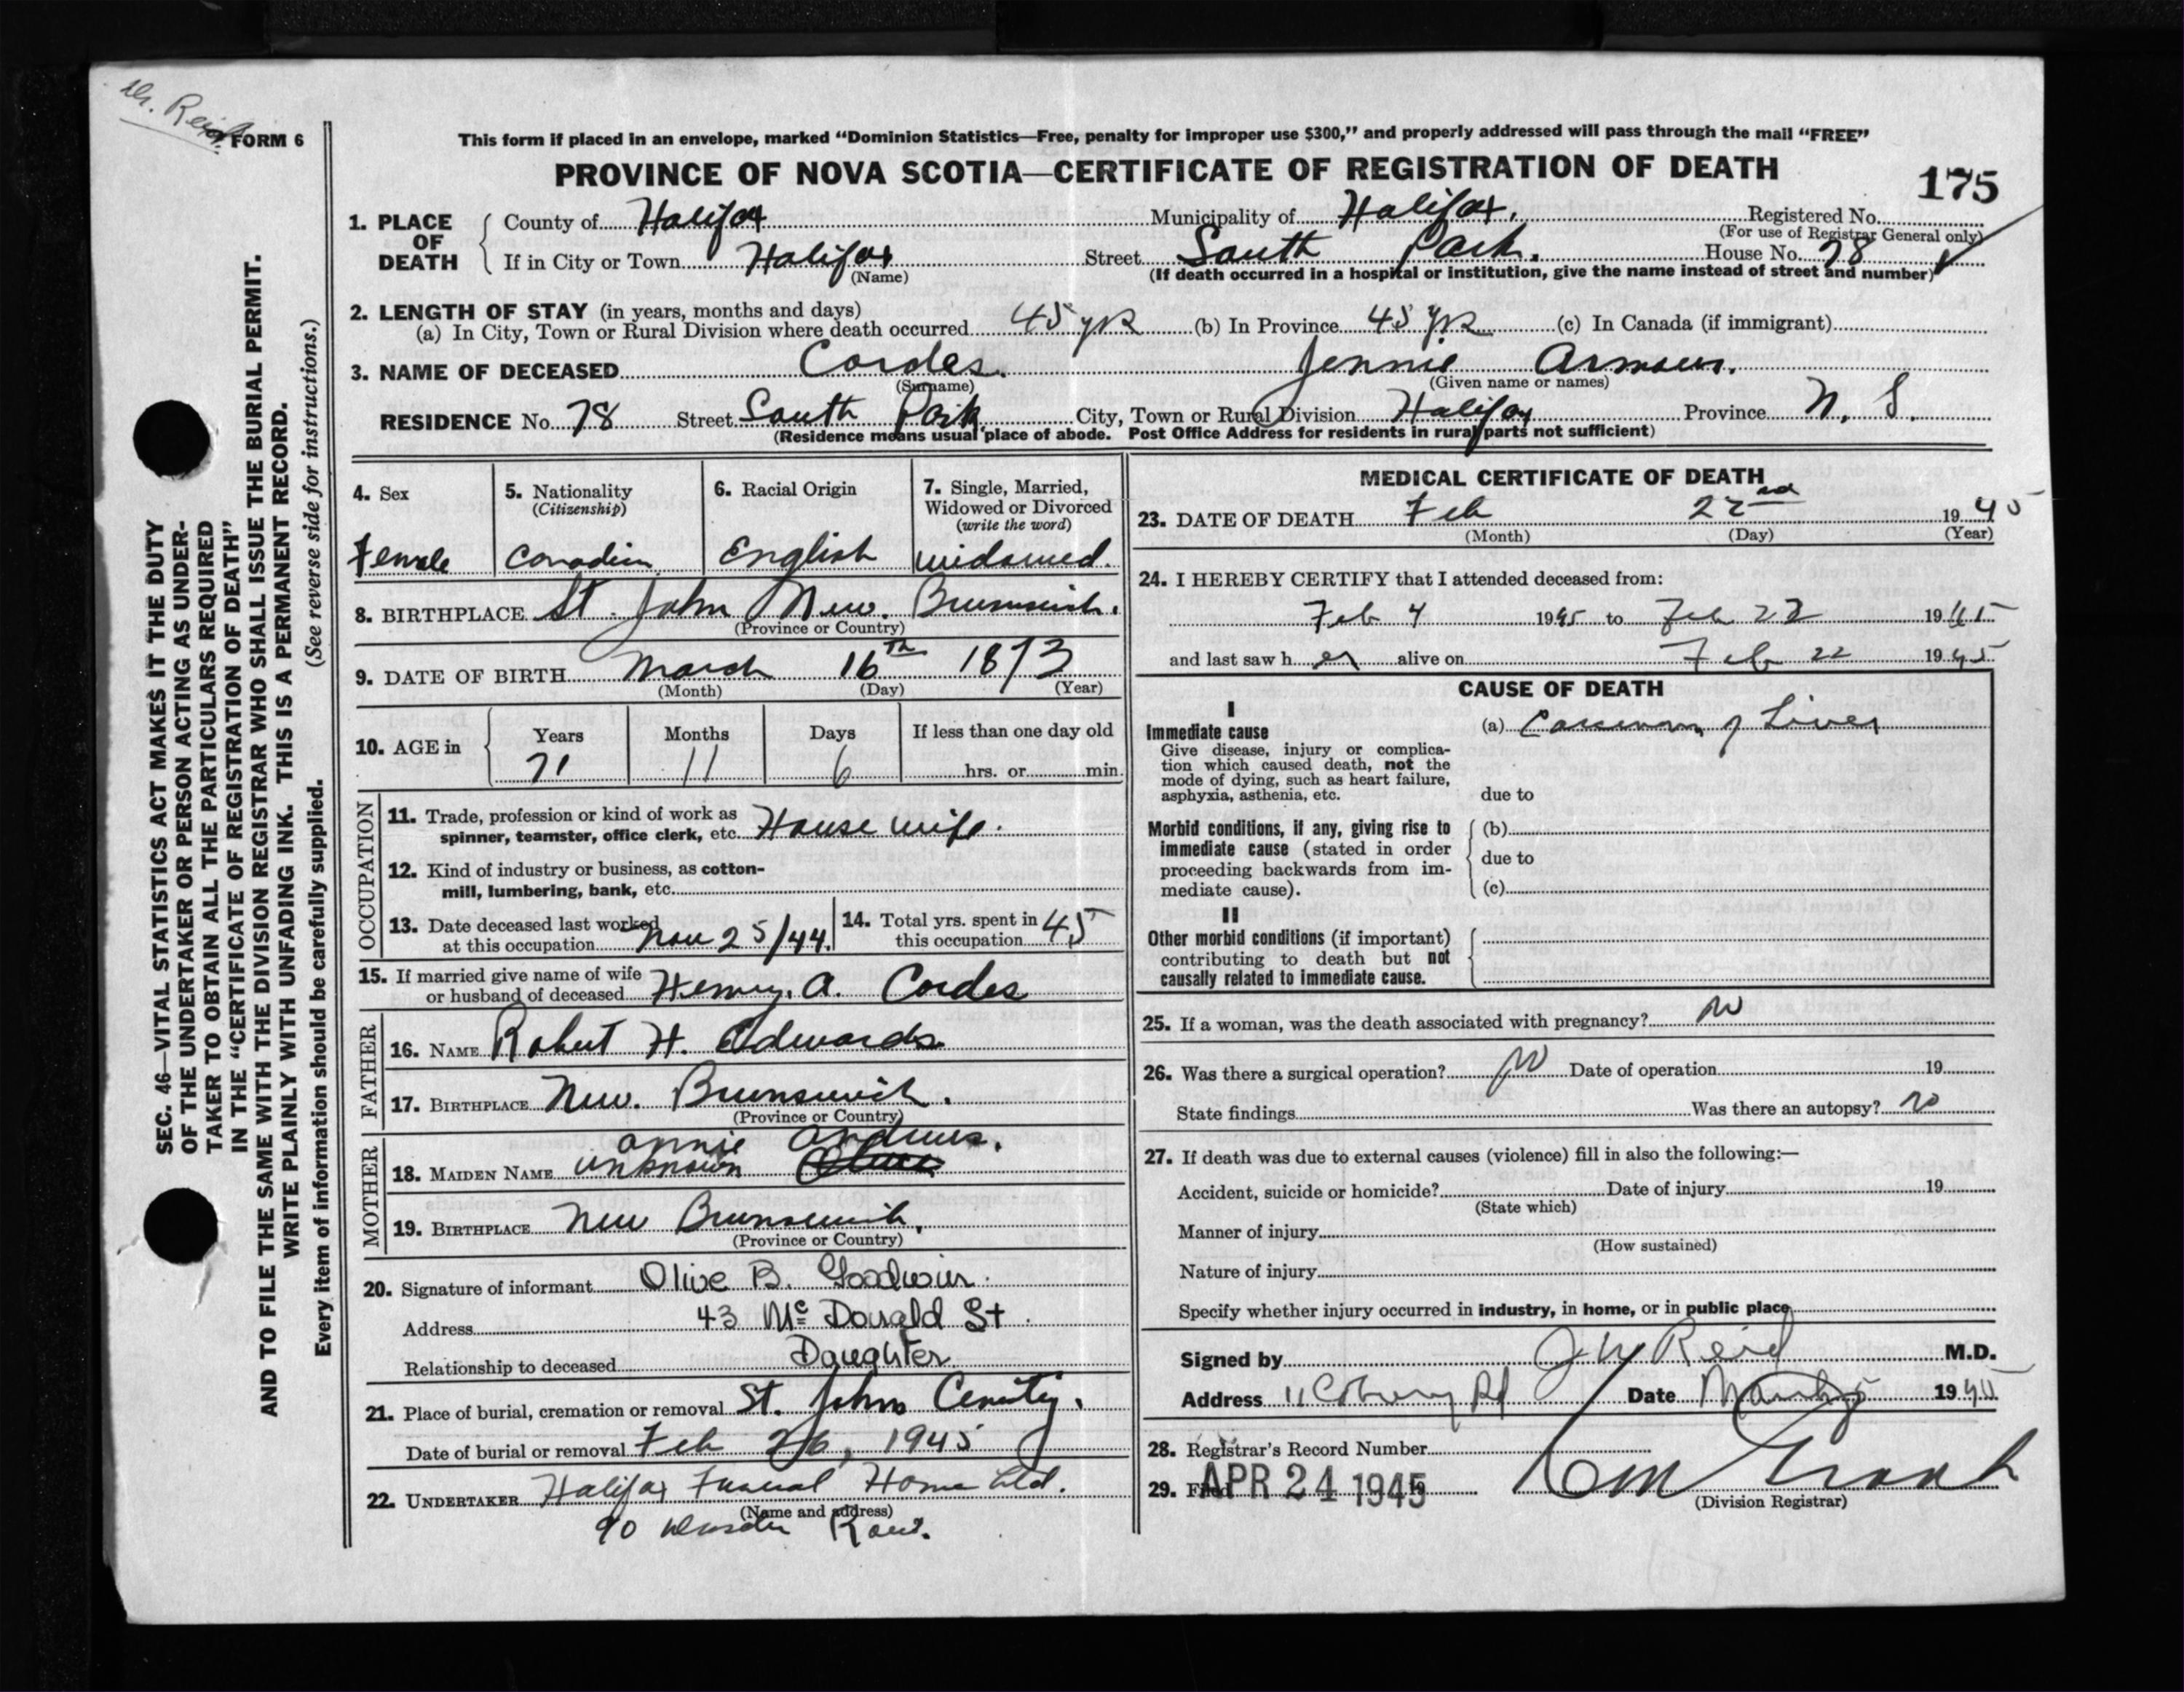 Dr. Reid.
FORM 6
This form if placed in an envelope, marked “Dominion Statistics—Free, penalty for improper use $300,” and properly addressed will pass through the mail “FREE”
PROVINCE OF NOVA SCOTIA—CERTIFICATE OF REGISTRATION OF DEATH
175
1. PLACE OF DEATH County of Halifax Municipality of Halifax. Registered No.
(For use of Registrar General only)
If in City or Town Halifax Street South Park. House No. 78
(Name) (If death occurred in a hospital or institution, give the name instead of street and number)
2. LENGTH OF STAY (in years, months and days)
(a) In City, Town or Rural Division where death occurred 45 yrs (b) In Province 45 yrs (c) In Canada (if immigrant)
3. NAME OF DECEASED Cordes. Jennie Armour.
(Surname) (Given name or names)
RESIDENCE No. 78 Street South Park City, Town or Rural Division Halifax Province N. S.
(Residence means usual place of abode. Post Office Address for residents in rural parts not sufficient)
SEC. 46—VITAL STATISTICS ACT MAKES IT THE DUTY
OF THE UNDERTAKER OR PERSON ACTING AS UNDER-
TAKER TO OBTAIN ALL THE PARTICULARS REQUIRED
IN THE “CERTIFICATE OF REGISTRATION OF DEATH”
AND TO FILE THE SAME WITH THE DIVISION REGISTRAR WHO SHALL ISSUE THE BURIAL PERMIT.
WRITE PLAINLY WITH UNFADING INK. THIS IS A PERMANENT RECORD.
Every item of information should be carefully supplied. (See reverse side for instructions.)
4. Sex 5. Nationality 6. Racial Origin 7. Single, Married,
(Citizenship) Widowed or Divorced
(write the word)
Female Canadian English widowed.
8. BIRTHPLACE St. John New. Brunswick.
(Province or Country)
9. DATE OF BIRTH March 16th 1873
(Month) (Day) (Year)
10. AGE in Years Months Days If less than one day old
71 11 6 hrs. or min.
OCCUPATION
11. Trade, profession or kind of work as
spinner, teamster, office clerk, etc. House wife.
12. Kind of industry or business, as cotton-
mill, lumbering, bank, etc.
13. Date deceased last worked
at this occupation Nov 25/44.
14. Total yrs. spent in
this occupation 45
15. If married give name of wife
or husband of deceased Henry. A. Cordes
FATHER
16. NAME Robert H. Edwards
17. BIRTHPLACE New. Brunswick.
(Province or Country)
MOTHER
Annie Andrews.
18. MAIDEN NAME unknown
19. BIRTHPLACE New Brunswick.
(Province or Country)
20. Signature of informant Olive B. Goodwin.
Address 43 Mc Donald St.
Relationship to deceased Daughter
21. Place of burial, cremation or removal St. Johns Cemty.
Date of burial or removal Feb 26, 1945
22. UNDERTAKER Halifax Funeral Home Ltd.
(Name and address)
90 Windsor
MEDICAL CERTIFICATE OF DEATH
23. DATE OF DEATH Feb 22nd 1945
(Month) (Day) (Year)
24. I HEREBY CERTIFY that I attended deceased from:
Feb 4 1945 to Feb 22 1945
and last saw her alive on Feb 22 1945
CAUSE OF DEATH
I
Immediate cause (a) Carcinoma of Liver
Give disease, injury or complica-
tion which caused death, not the
mode of dying, such as heart failure,
asphyxia, asthenia, etc. due to
Morbid conditions, if any, giving rise to (b)
immediate cause (stated in order due to
proceeding backwards from im-
mediate cause). (c)
II
Other morbid conditions (if important)
contributing to death but not
causally related to immediate cause.
25. If a woman, was the death associated with pregnancy? No
26. Was there a surgical operation? No Date of operation 19
State findings Was there an autopsy? No
27. If death was due to external causes (violence) fill in also the following:—
Accident, suicide or homicide? Date of injury 19
(State which)
Manner of injury
(How sustained)
Nature of injury
Specify whether injury occurred in industry, in home, or in public place
Signed by J W Reid M.D.
Address 11 Coburg Rd Date March 5 1945
28. Registrar's Record Number
29. Filed APR 24 1945 19
(Division Registrar)